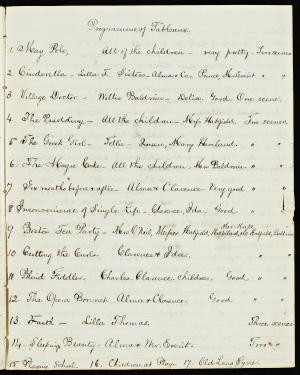 Programme of Tableaux.
1. May Pole, All of the children - very pretty - Two scenes
2. Cinderella - Lilla T. Sisters Alma & Co Prince, " "
3. Village Doctor - Willie Baldwin - Delia. Good One scene.
4. The Pudding - All the children - Hatfield. Two scenes
5 The Greek Girl. Tottie - Mary " "
6. The Magic Cake All the children, Mrs Baldwin. " "
7 Six months before & after - Alma & Clarence Very good " "
8 Inconvenience of Single Life - Clarence, Ida Good " "
9 Boston Tea Party - Mrs O'Neil, Hatfield, " "
10 Cutting the Cards Clarence & Ida. " "
11 Blind Fiddler. Charles Clarence children Good " "
12 The Opera Bonnet Alma & Clarence Good " "
13. Faith - Lilla Thomas. Three scenes
14. Sleeping Beauty - Alma & Mr. Everit. Two "
15 School 16. Children at Play 17. Old